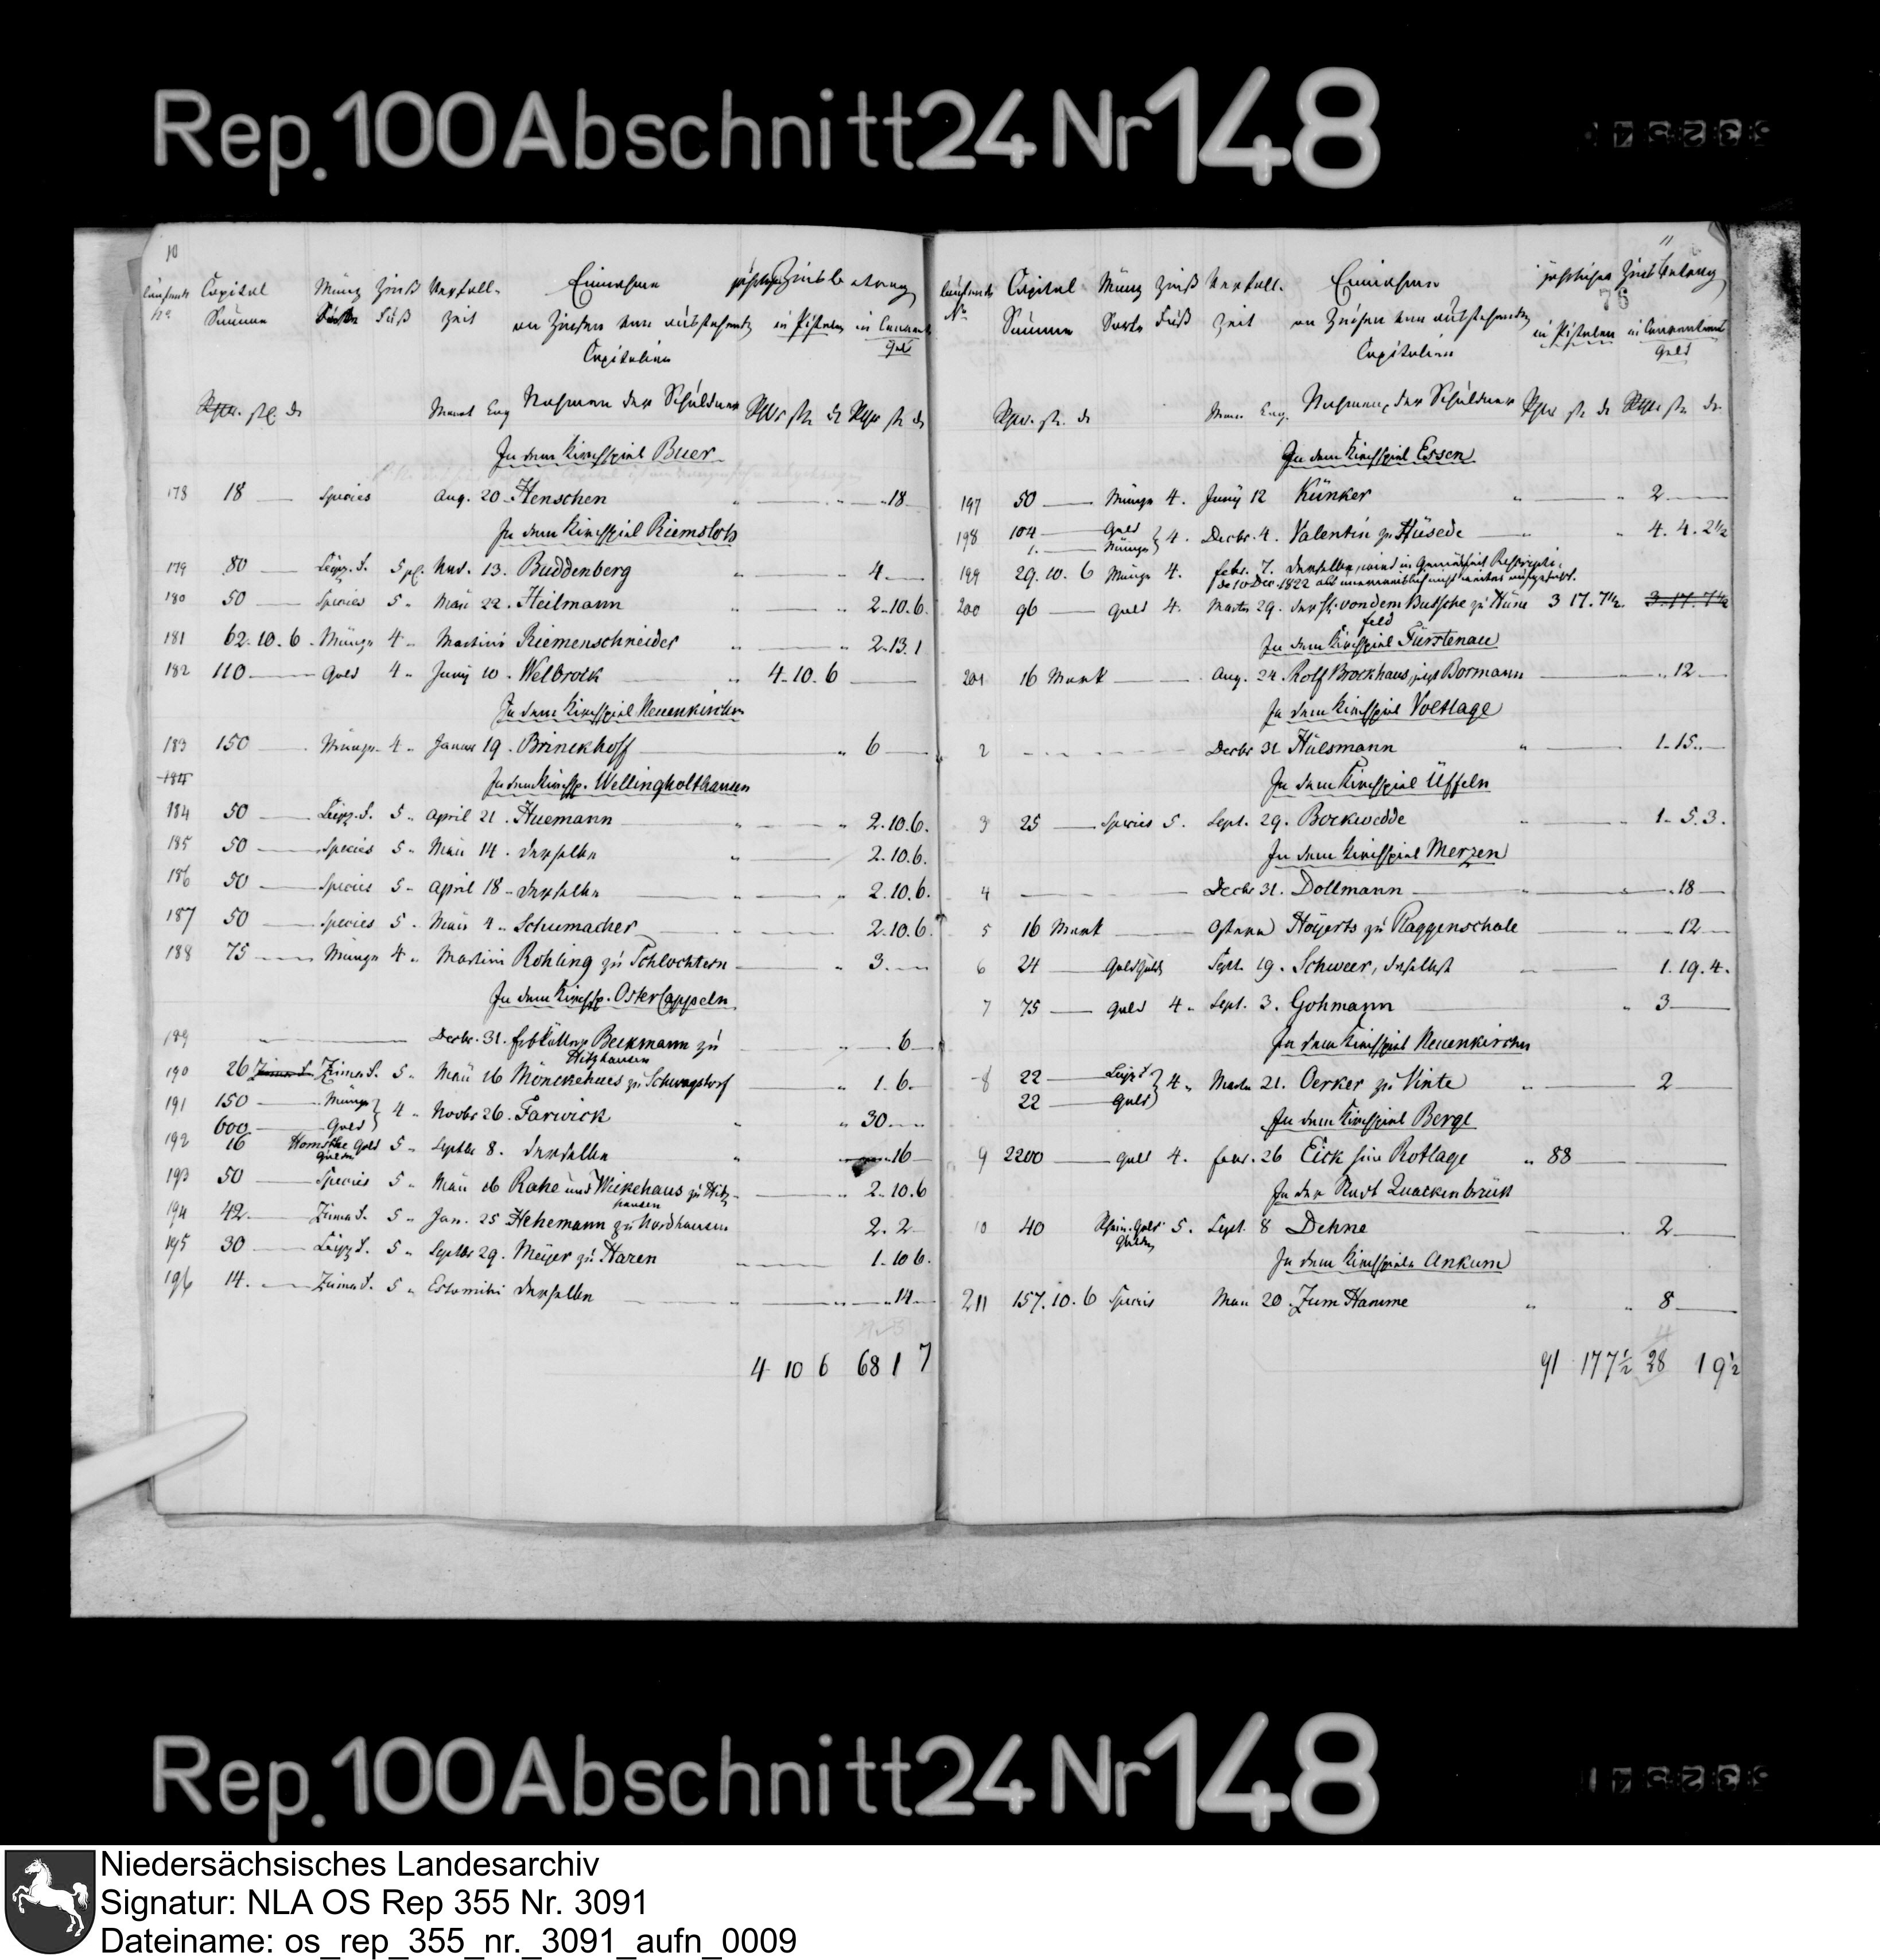 Rep. 100 Abschnitt 24 Nr 148
10
laufende Capital Münz Zins Verfall- Einnahme jährliche Zinsbetrag
No Summe Sorte Fuß Zeit an Zinsen von ausstehenden in Pistolen in Convent
Capitalien Geld
Rthlr. ß. d. Monat Tag Nahmen der Schuldner Rthlr ß d Rthlr ß d
In dem Kirchspiel Buer
178 18 Species Aug. 20 Henschen 18
In dem Kirchspiel Riemsloh
179 80 Leipz. F. 5 pC. Nov. 13. Buddenberg 4
180 50 Species 5 Mai 22. Heilmann 2. 10. 6.
181 62. 10. 6 Münze 4 Martini Riemenschneider 2. 13. 1
182 110 Gold 4 Juny 10. Welbrock 4. 10. 6
In dem Kirchspiel Neuenkirchen
183 150 Münze 4 Januar 19. Brinckhoff 6
184
In dem Kirchsp. Wellingholthausen
184 50 Leipz. F. 5 April 21. Huemann 2. 10. 6.
185 50 Species 5 Mai 14. derselbe 2. 10. 6.
186 50 Species 5 April 18 derselbe 2. 10. 6.
187 50 Species 5 Mai 4 Schumacher 2. 10. 6.
188 75 Münze 4 Martini Rohling zu Schlochtern 3.
In dem Kirchsp. OsterCappeln
189 Decbr. 31. Erbkötter Beckmann zu 6
Hitzhausen
190 26 Zinna F. Zinna F. 5 Mai 16 Mönckehues zu Schwagstorf 1. 6.
191 150 Münze
600 Gold 4 Novbr 26. Farwick 30
192 16 Hornsche Gold 5 Septbr 8. derselbe 16
Gulden
193 50 Species 5 Mai 16 Rahe und Weikehaus zu Hitz- 2. 10. 6
hausen
194 42. Zinna F. 5 Jan. 25 Hehemann zu Nordhausen 2. 2
195 30 Leipz F. 5 Septbr 29. Meyer zu Haren 1. 10 6.
196 14. Zinna F. 5 Estomihi derselbe 14
4 10 6 68 1 7
11
76
laufende Capital Münz Zins Verfall- Einnahme jährlicher Zins Betrag
No Summe Sorte Fuß Zeit an Zinsen von ausstehenden in Pistolen in Conventions
Capitalien Geld
Rthlr. ß. d. Mon. Tag. Nahmen der Schuldner Rthlr ß d Rthlr ß d.
In dem Kirchspiel Essen
197 50 Münze 4. Juny 12 Künker 2
198 104 Gold
1. Münze 4. Decbr. 4. Valentin zu Hüsede 4. 4. 2½
199 29. 10. 6 Münze 4. Febr. 7. derselbe, wird in Gemäßheit Rescripti
de 10 Dec. 1822 als unvermöglich nicht weiter aufgeführt.
200 96 Gold 4. Martii 29. der H. von dem Bussche zu Hüne 3 17. 7½. 3. 17. 7½
feld
In dem Kirchspiel Fürstenau
201 16 Mark Aug. 24. Rolf Brockhaus, jetzt Bormann 12
In dem Kirchspiel Voltlage
2 Decbr 31 Hülsmann 1. 15.
In dem Kirchspiel Üffeln
3 25 Species 5. Sept. 29. Bockwedde 1. 5. 3.
In dem Kirchspiel Merzen
4 Decbr 31. Dollmann 18
5 16 Mark Ostern Höyerts zu Raggenschale 12
6 24 Goldguld Sept. 19. Schweer, daselbst 1. 19. 4.
7 75 Gold 4 Sept. 3. Gohmann 3
In dem Kirchspiel Neuenkirchen
8 22 Leipz F
22 Gold 4 Martii 21. Oerker zu Vinte 2
In dem Kirchspiel Berge
9 2200 Gold 4. Febr. 26 Eick sive Rotlage 88
In der Stadt Quackenbrück
10 40 Rhein. Gold 5. Sept. 8 Dehne 2
Gulden
In dem Kirchspiele Ankum
211 157. 10. 6 Species Mai 20. Zum Hamme 8
91 17 7½ 28 1 9½
Rep. 100 Abschnitt 24 Nr 148
Niedersächsisches Landesarchiv
Signatur: NLA OS Rep 355 Nr. 3091
Dateiname: os_rep_355_nr._3091_aufn_0009